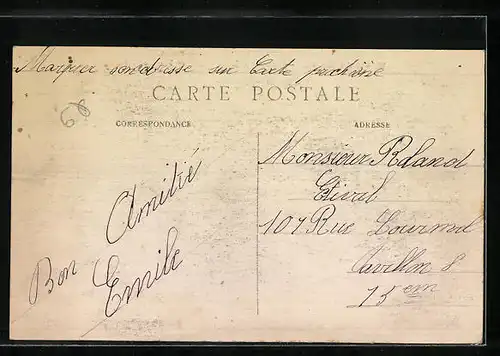 Marquer son adresse sur Carte prochaine
CARTE POSTALE
68
CORRESPONDANCE
ADRESSE
Bon Amitié
Emile
Monsieur Roland
101 Rue Lourmel
Pavillon 8
15em